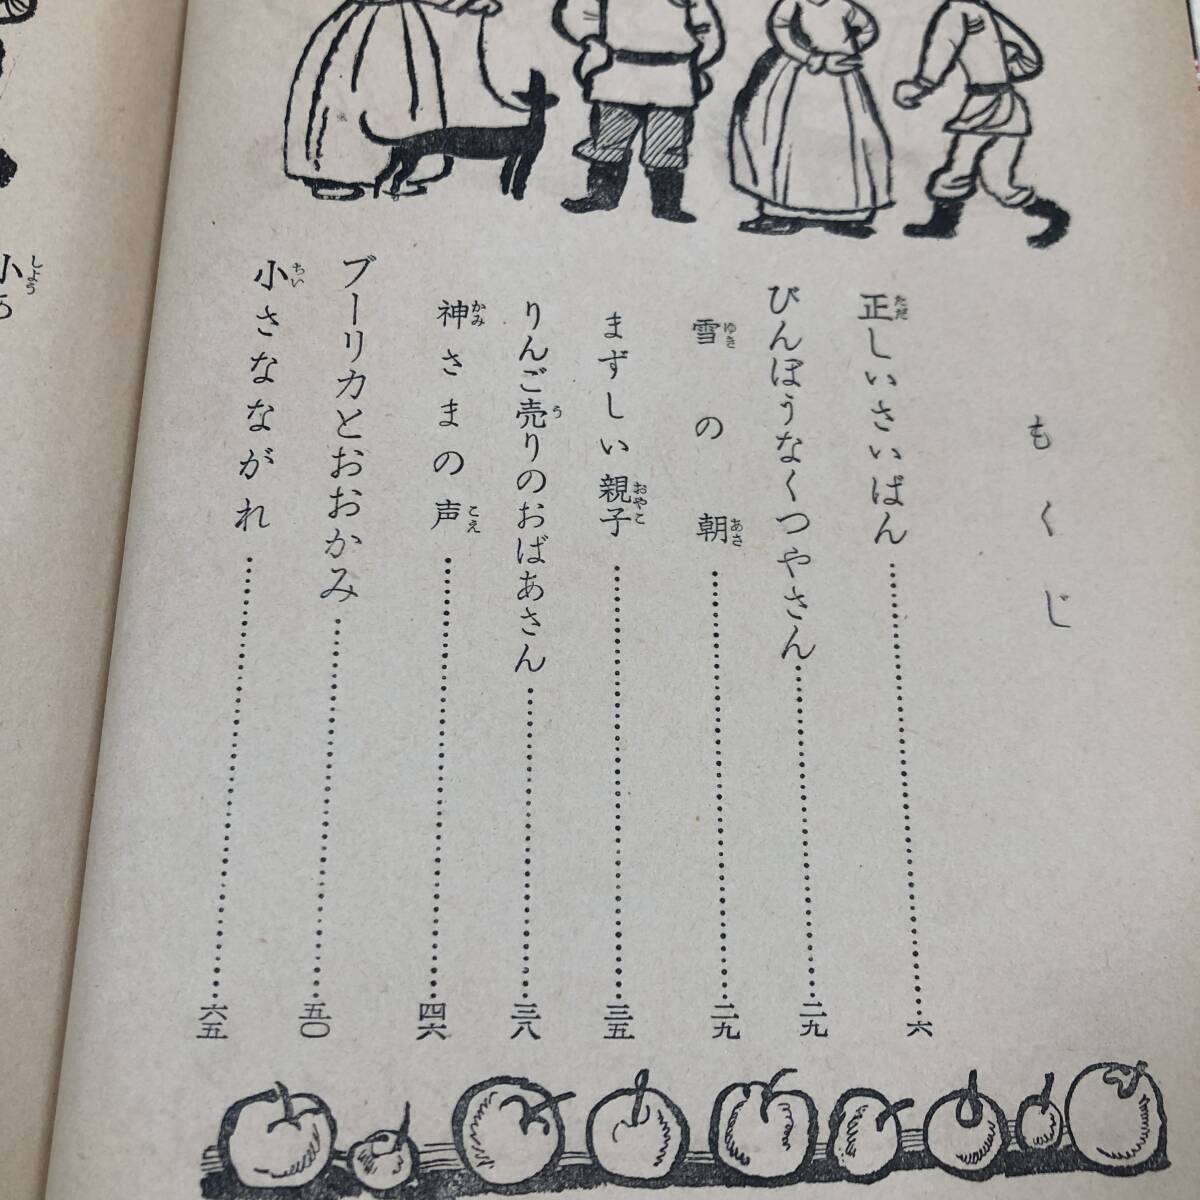 もくじ
正しいさいばん……六
びんぼうなくつやさん……二九
雪の朝……二九
まずしい親子……三五
りんご売りのおばあさん……三八
神さまの声……四六
ブーリカとおおかみ……五〇
小さなながれ……六五